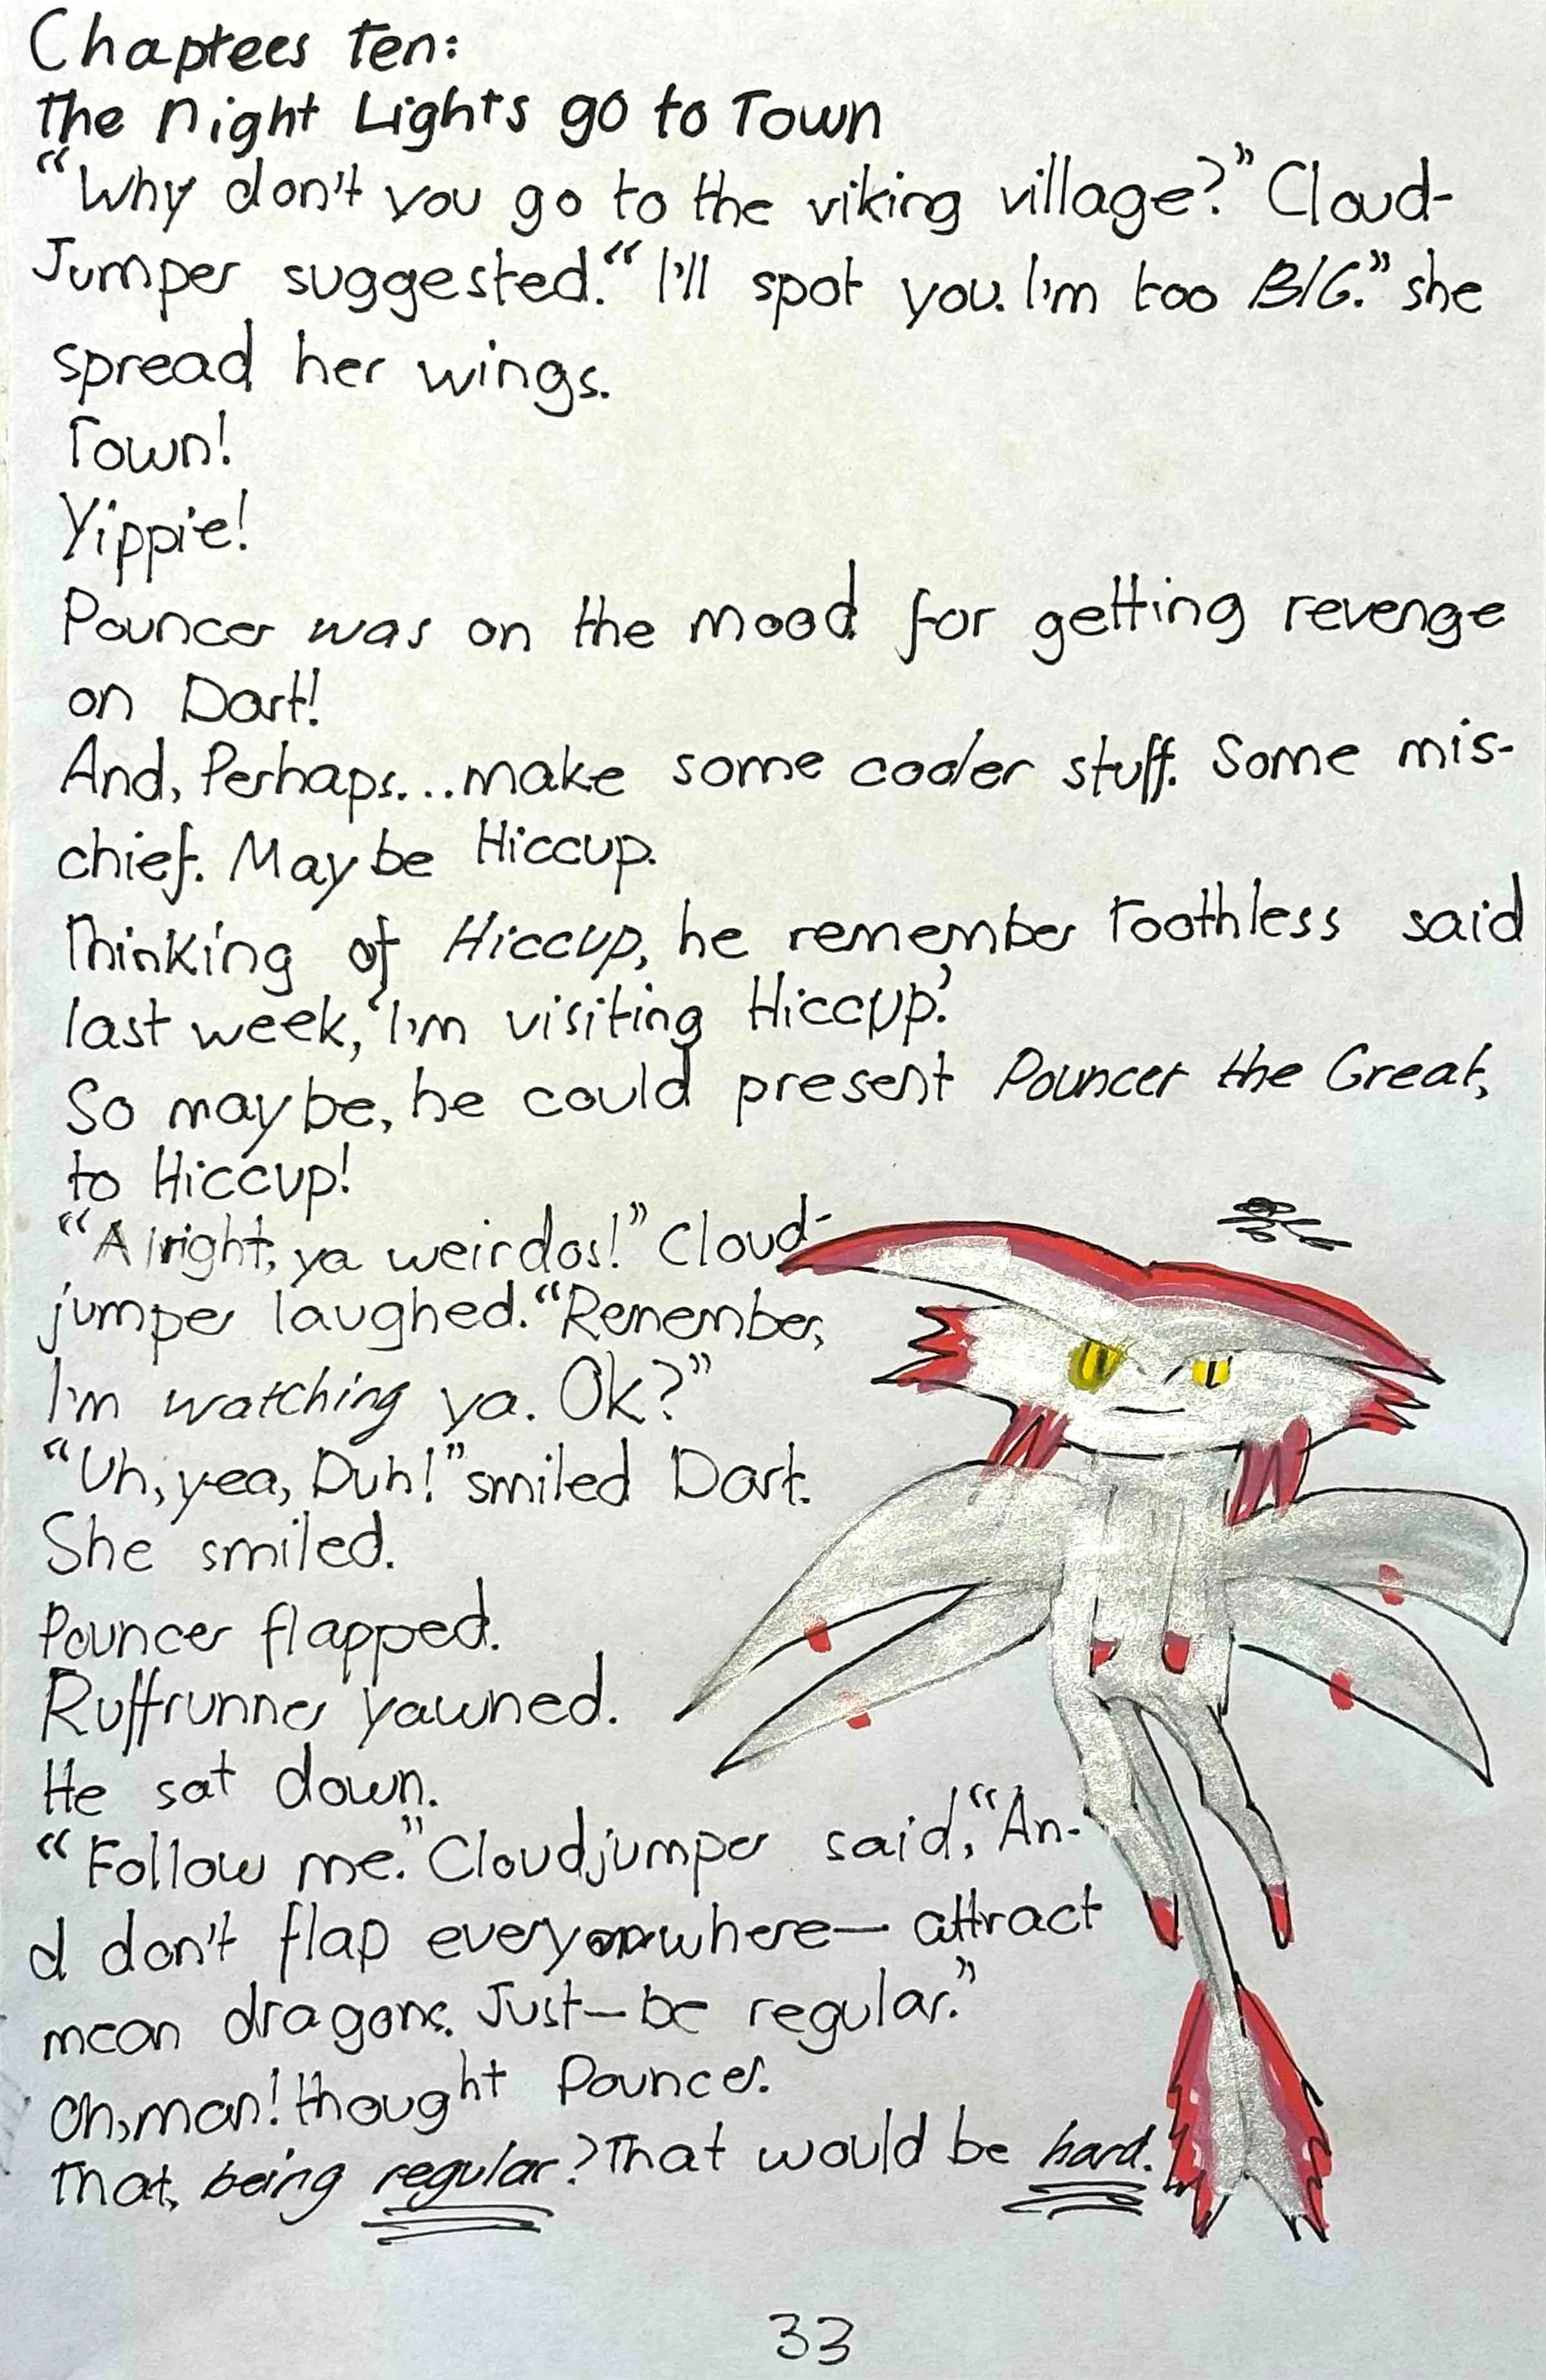 Chaptees Ten:
The Night Lights go to Town
"Why don't you go to the viking village?" Cloud-
Jumper suggested. "I'll spot you. I'm too BIG." she
spread her wings.
Town!
Yippie!
Pouncer was on the mood for getting revenge
on Dart!
And, Perhaps...make some cooler stuff. Some mis-
chief. Maybe Hiccup.
Thinking of Hiccup, he remember Toothless said
last week, 'I'm visiting Hiccup.'
So maybe, he could present Pouncer the Great,
to Hiccup!
"Alright, ya weirdos!" Cloud-
jumper laughed. "Remember,
I'm watching ya. Ok?"
"Uh, yea, Duh!" smiled Dart.
She smiled.
Pouncer flapped.
Ruffrunner yawned.
He sat down.
"Follow me." Cloudjumper said, "An-
d don't flap everywhere— attract
mean dragons. Just—be regular."
Oh, man! thought Pouncer.
That, being regular? That would be hard.
33